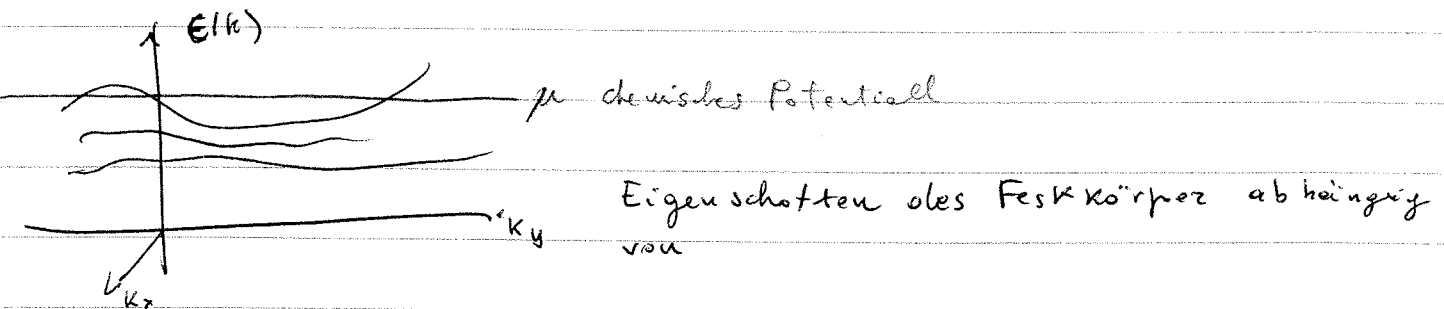 E(k)
μ chemisches Potentiall
Eigenschaften des Festkörper abhängig
von
ky
kx